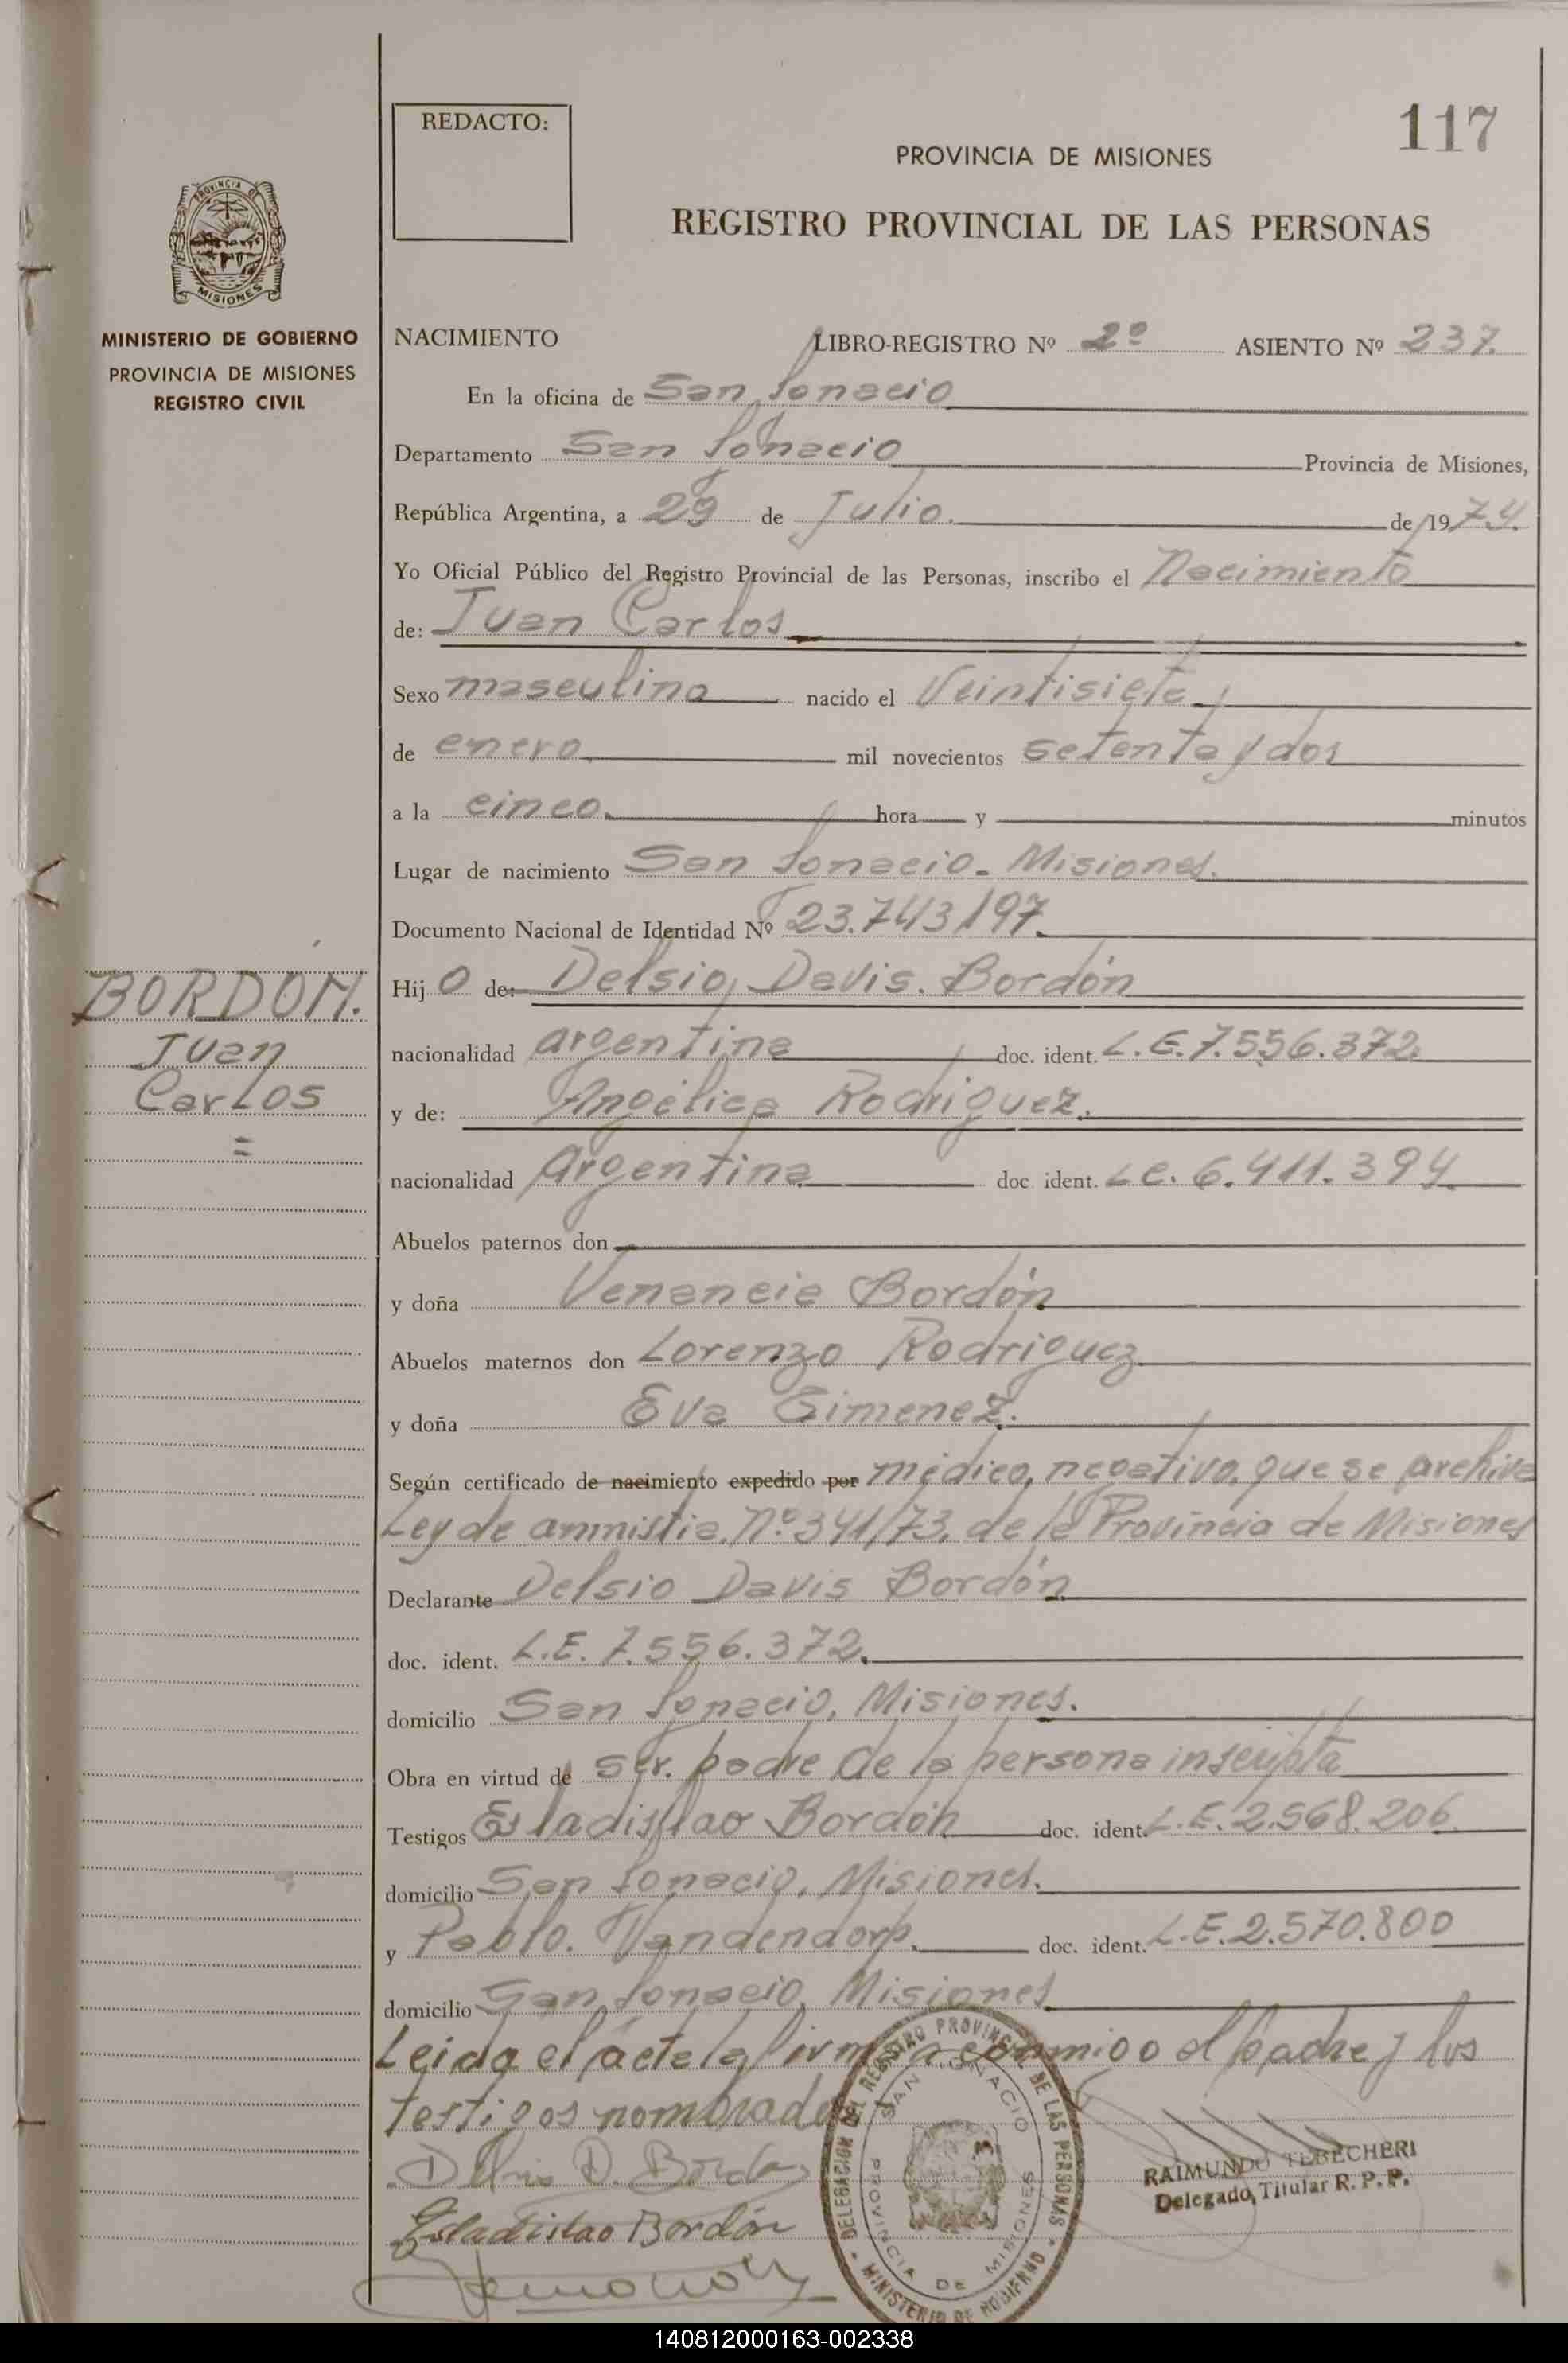 117
REDACTO:
PROVINCIA DE MISIONES
REGISTRO PROVINCIAL DE LAS PERSONAS
PROVINCIA DE
MISIONES
MINISTERIO DE GOBIERNO
PROVINCIA DE MISIONES
REGISTRO CIVIL
NACIMIENTO LIBRO-REGISTRO Nº 2º ASIENTO Nº 237.
En la oficina de San Ignacio
Departamento San Ignacio Provincia de Misiones,
República Argentina, a 29 de Julio. de 1974.
Yo Oficial Público del Registro Provincial de las Personas, inscribo el Nacimiento
de: Juan Carlos
Sexo masculino nacido el Veintisiete
de enero mil novecientos setenta y dos
a la cinco. hora y minutos
Lugar de nacimiento San Ignacio. Misiones.
Documento Nacional de Identidad Nº 23.743197.
BORDON.
Juan
Carlos
=
Hijo de: Delsio Davis. Bordón
nacionalidad argentina doc. ident. L.E.7.556.372.
y de: Angélica Rodriguez.
nacionalidad Argentina doc. ident. LC. 6.411.394.
Abuelos paternos don
y doña Venancia Bordón
Abuelos maternos don Lorenzo Rodriguez
y doña Eva Gimenez.
Según certificado de nacimiento expedido por médico, negativo, que se archiva
Ley de amnistia. Nº 341/73. de la Provincia de Misiones
Declarante Delsio Davis Bordón
doc. ident. L.E. 7.556.372.
domicilio San Ignacio, Misiones.
Obra en virtud de ser. padre de la persona inscripta
Testigos Esladislao Bordón doc. ident. L.E. 2.568.206.
domicilio San Ignacio, Misiones.
y Pablo. Vandendorp. doc. ident. L.E.2.570.800
domicilio San Ignacio, Misiones
Leida el acta la firman conmigo el padre y los
testigos nombrados
DELEGACION DEL REGISTRO PROVINCIAL DE LAS PERSONAS
MINISTERIO DE GOBIERNO
SAN IGNACIO
PROVINCIA DE MISIONES
RAIMUNDO TEBECHERI
Delegado Titular R. P. P.
Esladislao Bordón
140812000163-002338